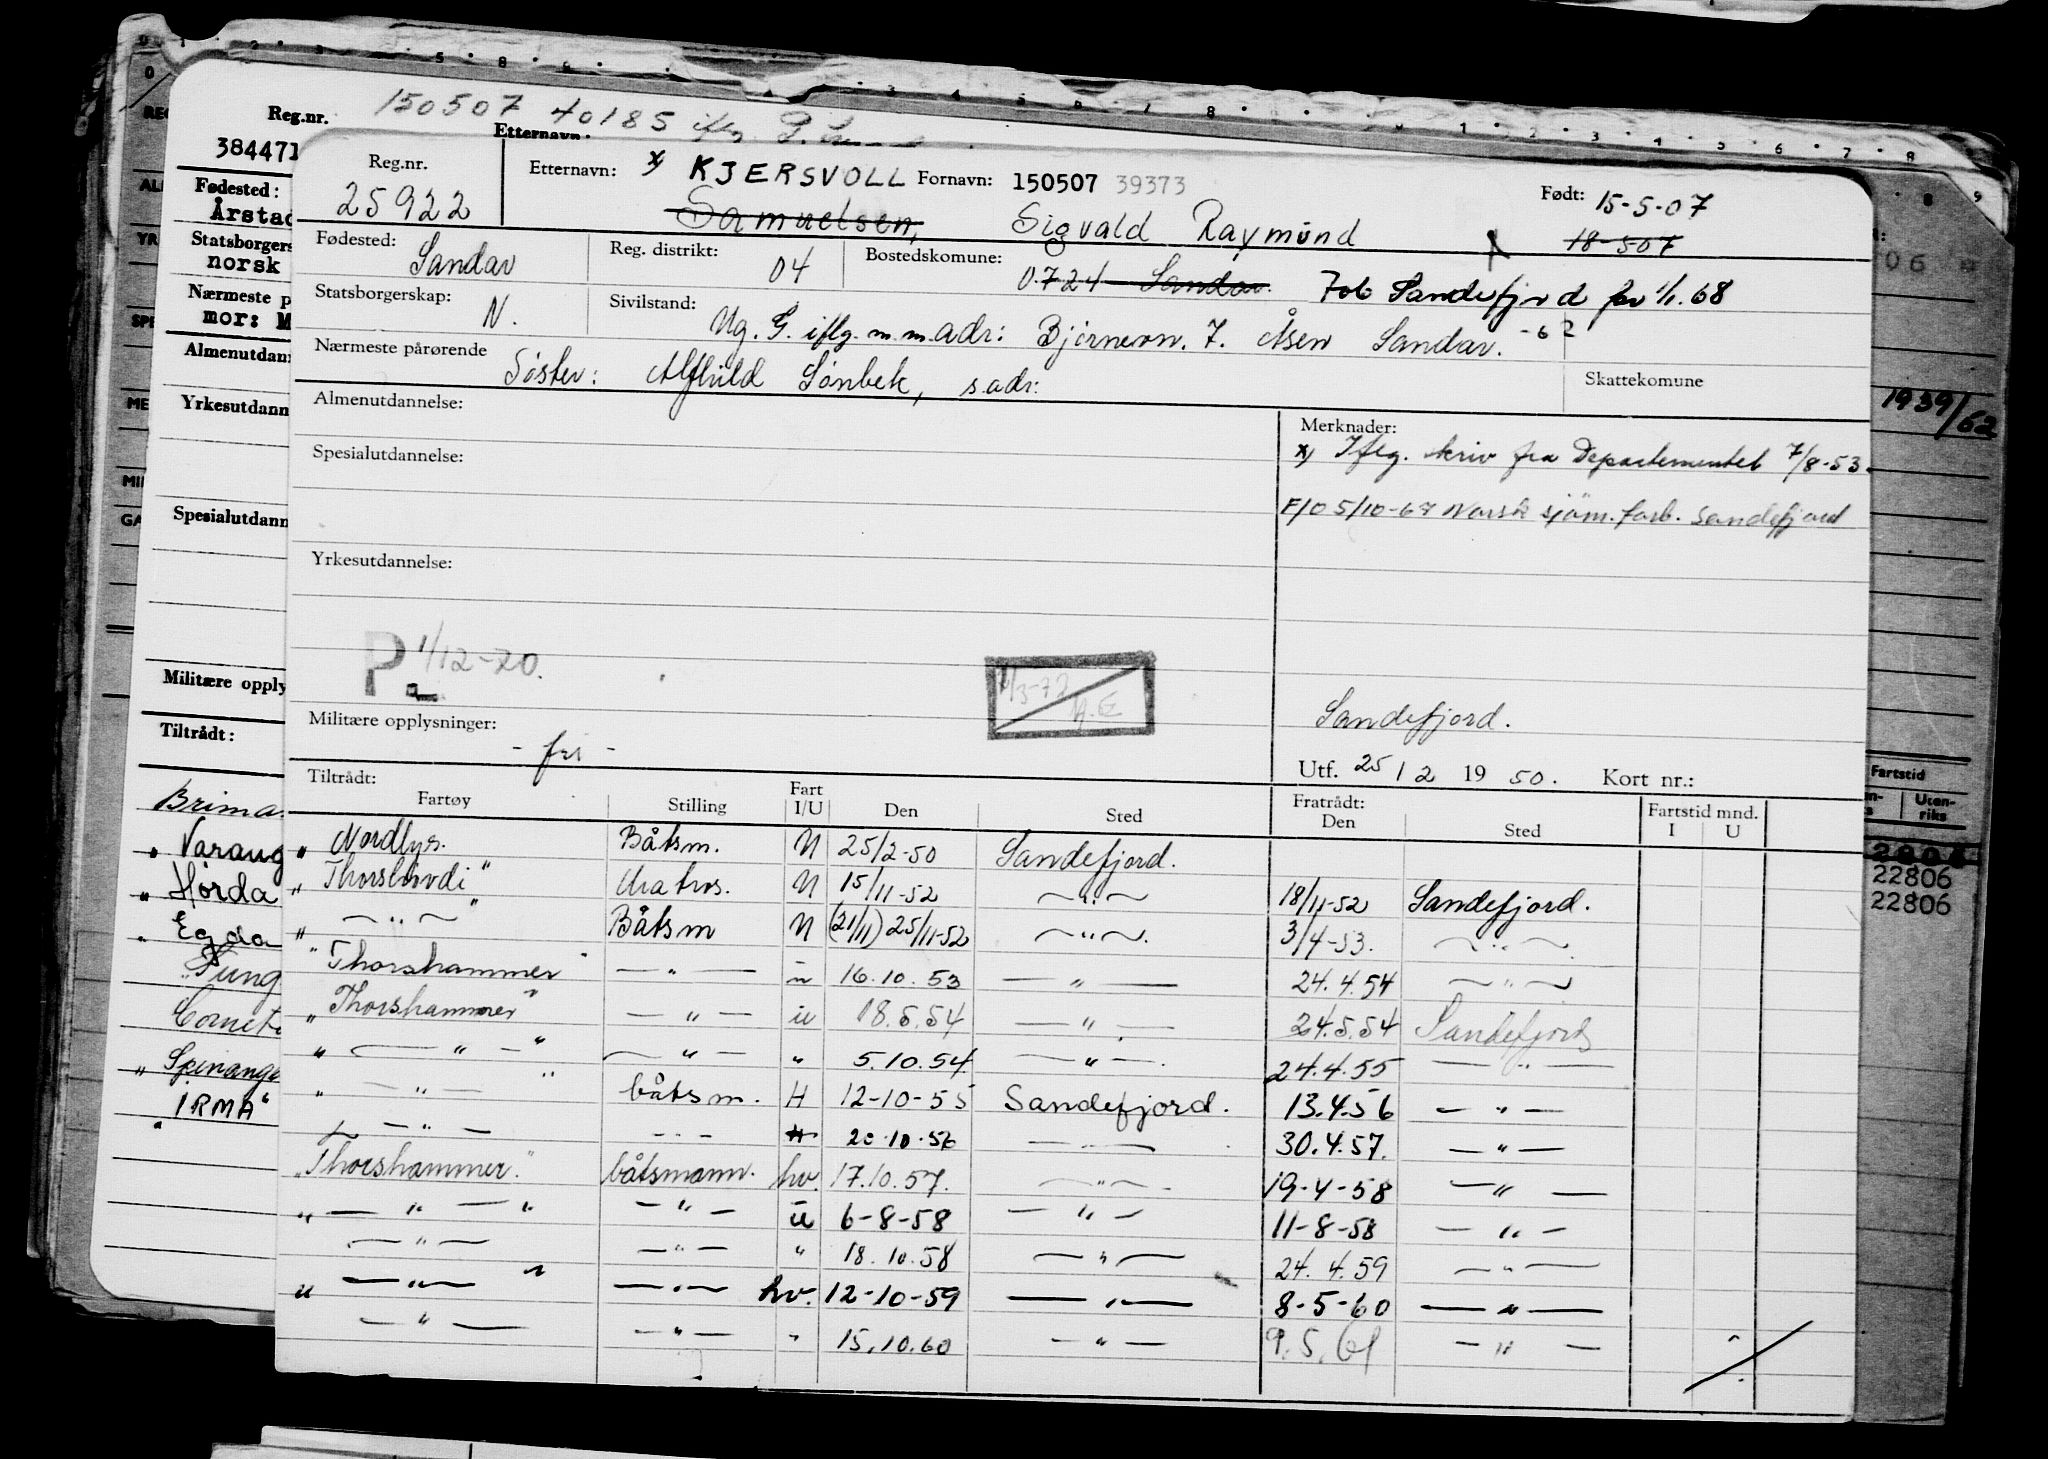 Reg.nr. 150507 40185 iflg.
384471 Etternavn:
Fødested:
Årstad
Statsborgers
norsk
Nærmeste p
mor: M
Almenutdann
Yrkesutdann
Spesialutdann
Militære opply
Tiltrådt:
Varang
Hørda
Egda
Tung
Comet
Spinang
"IRMA"
Reg.nr. 25922
Etternavn: x) KJERSVOLL Fornavn: 150507 39373 Født: 15-5-07
Samuelsen, Sigvald Raymond 18-507
Fødested: Sandar Reg. distrikt: 04 Bostedskomune: 0724 Sandar. 706 Sandefjord fra 1/1.68
Statsborgerskap: N. Sivilstand: Ug. G. iflg. m.m adr: Bjørnevn. 7. Åsen Sandar. -62
Nærmeste pårørende Søster: Alfhild Lønbek, s.adr: Skattekomune
Almenutdannelse: Merknader:
x) Iflg. skriv fra Departementet 7/8-53.
Spesialutdannelse:
F/O 5/10-67 Norsk sjøm.forb. Sandefjord
Yrkesutdannelse:
P 1/12-70.
1/3-72
Militære opplysninger: - fri - Sandefjord.
Utf. 25/2 1950. Kort nr.:
Tiltrådt: Fartøy Stilling Fart I/U Den Sted Fratrådt: Den Sted Fartstid mnd. I U
" Nordlys. Båtsm. U 25/2-50 Sandefjord.
" Thorshövdi " Matros. U 15/11-52 — " — 18/11-52 Sandefjord.
" — " — " Båtsm U (21/11) 25/11-52 — " —. 3/4-53. — " —
" Thorshammer " — " — u 16.10.53 — " — 24.4.54 — " —
" Thorshammer " — " — u 18.5.54 — " — 24.5.54 Sandefjord
" — " — " — " — " 5.10.54 — " — 24.4.55 — " —
" — " — " båtsm. H 12-10-55 Sandefjord. 13.4.56 — " —
— " — — " — H 20.10.56 — " — 30.4.57. — " —
" Thorshammer." båtsmann. hv. 17.10.57. — " — 19-4-58 — " —
" — " — " — " — u 6-8-58 — " — 11-8-58 — " —
— " — — " — " 18.10.58 — " — 24.4.59 — " —
" — " — " — " — hv. 12-10-59 — " — 8-5-60 — " —
— " — — " — " 15.10.60 — " — 9.5.61 — " —
1939/62
Fartstid
Uten-riks
22806
22806